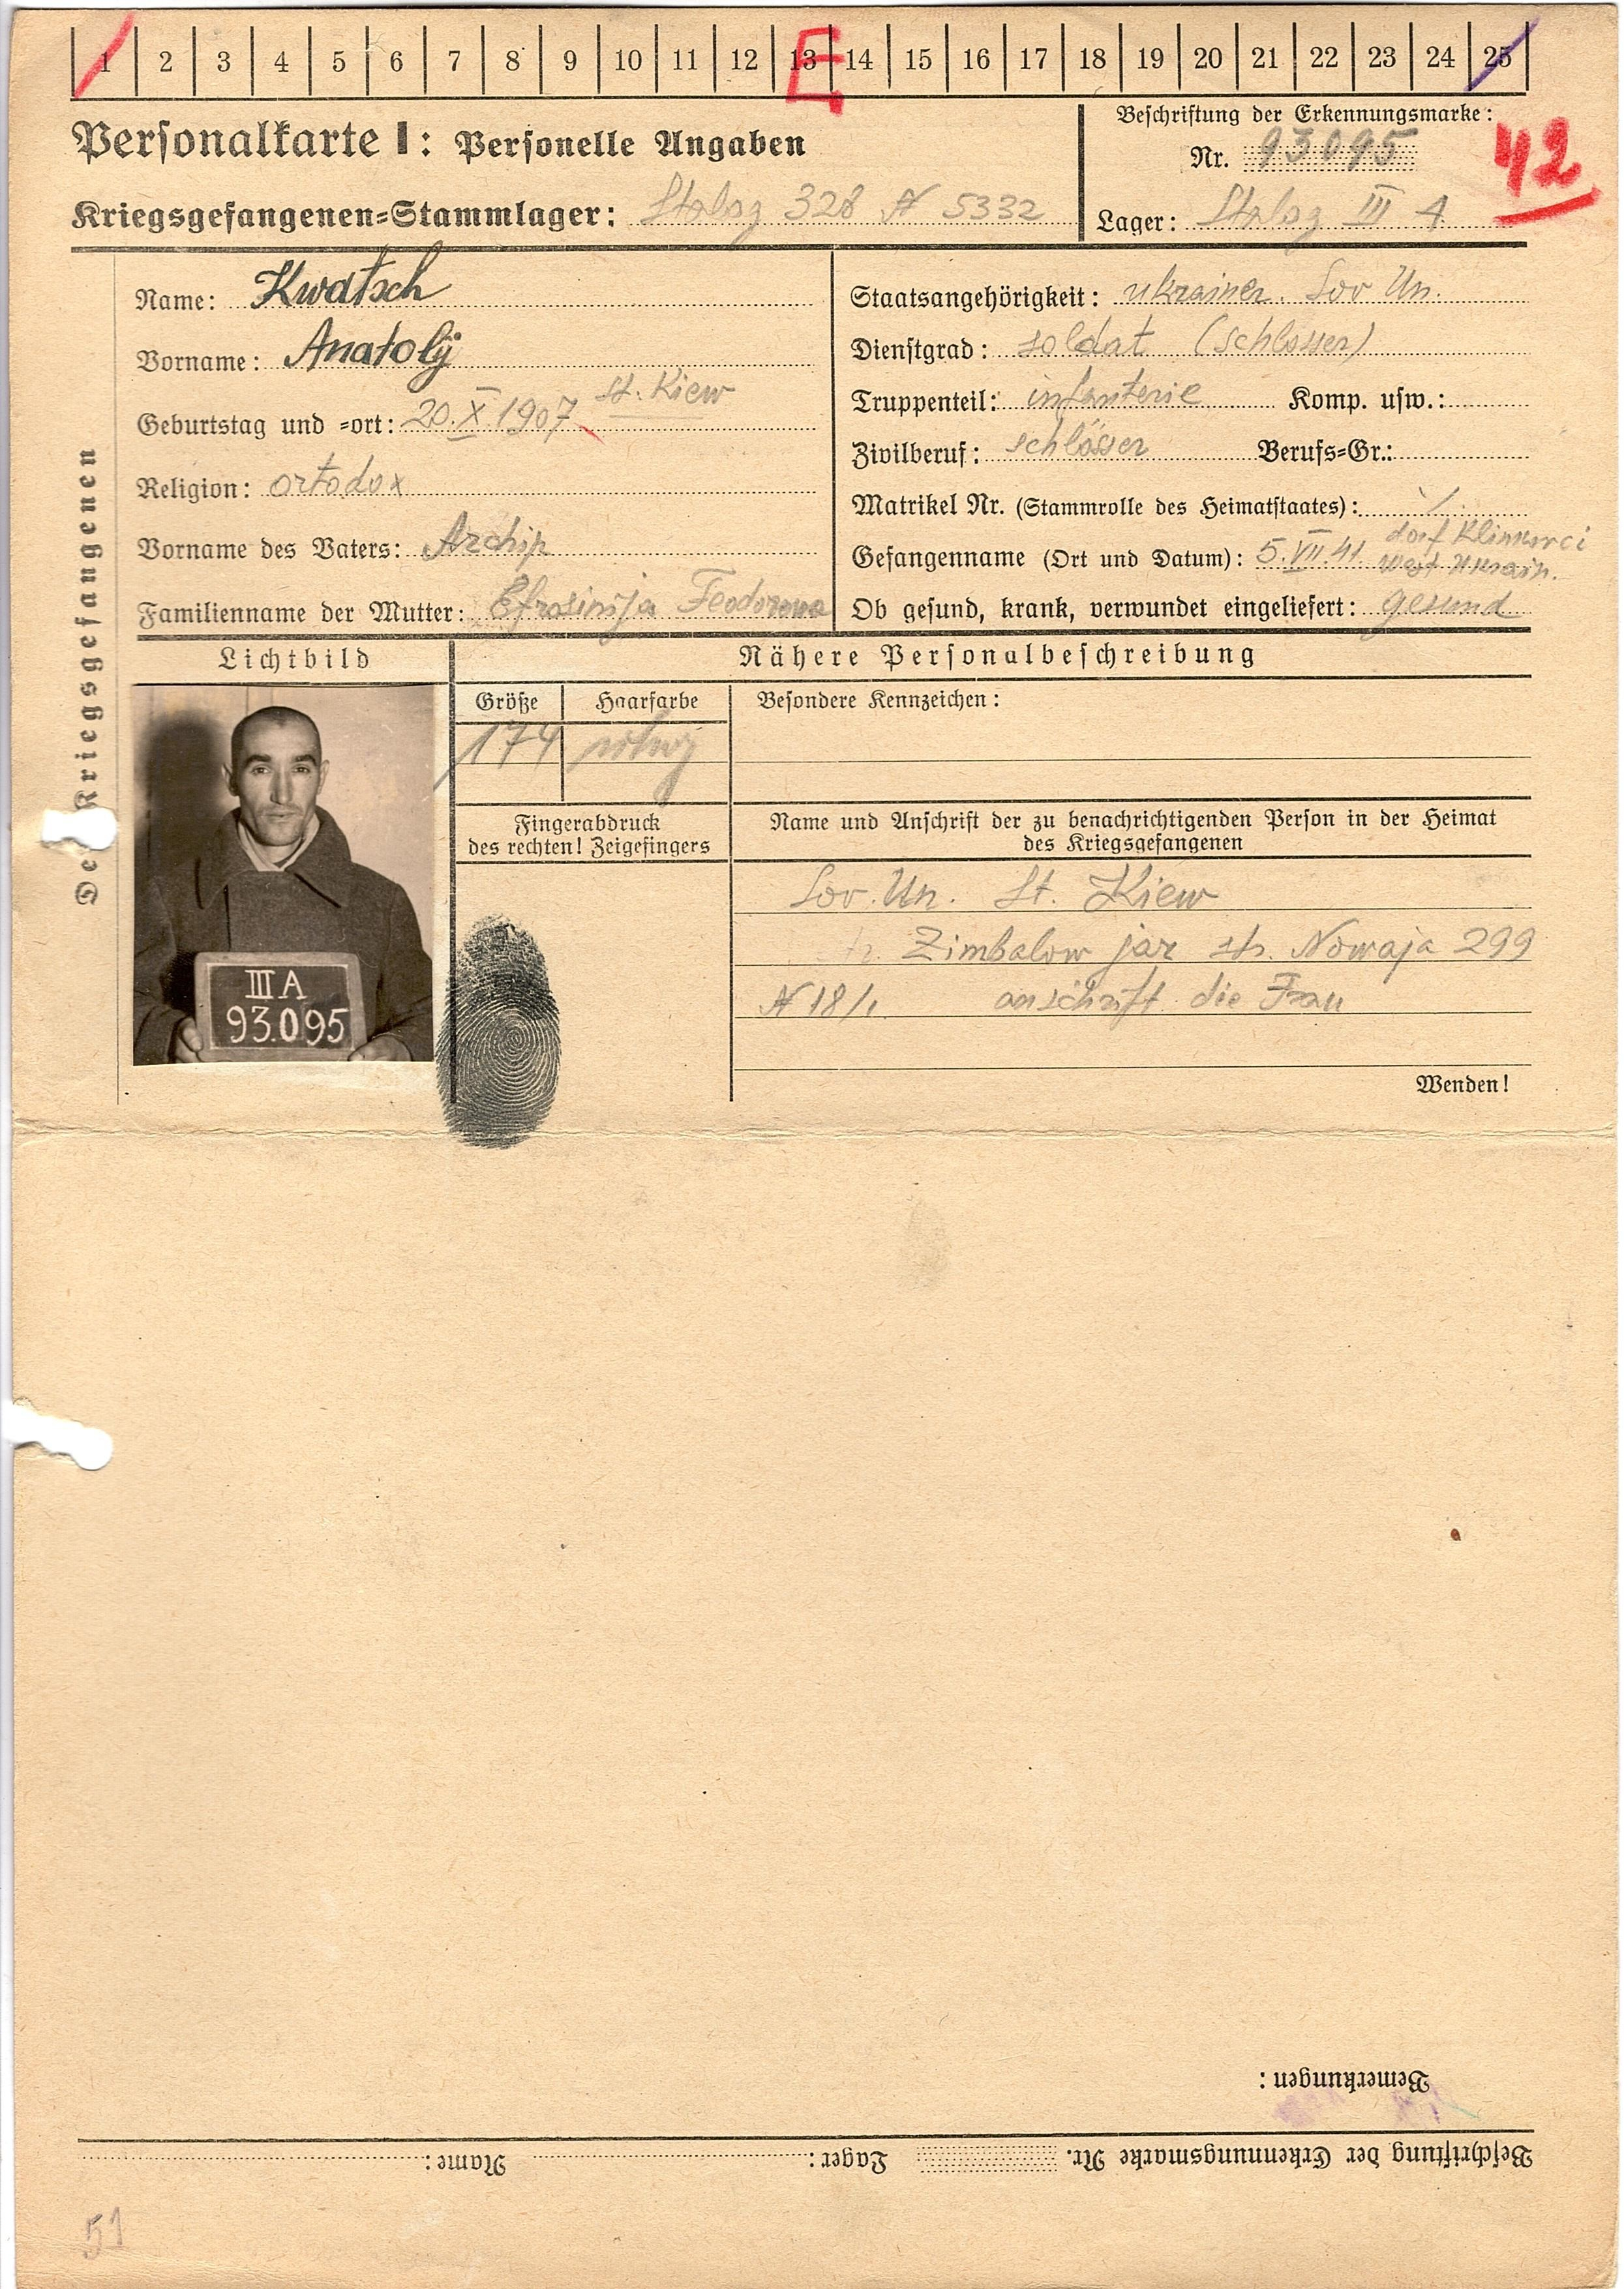 1 2 3 4 5 6 7 8 9 10 11 12 13 14 15 16 17 18 19 20 21 22 23 24 25
E
Personalkarte I: Personelle Angaben
Beschriftung der Erkennungsmarke:
Nr. 93095
42
Kriegsgefangenen=Stammlager: Stalag 328 N 5332
Lager: Stalag III A
Des Kriegsgefangenen
Name: Kwatsch
Vorname: Anatolij
Geburtstag und =ort: 20.X.1907 st. Kiew
Religion: ortodox
Vorname des Vaters: Archip
Familienname der Mutter: Efrosinija Feodorowa
Staatsangehörigkeit: ukrainer. Sov Un.
Dienstgrad: soldat (schlosser)
Truppenteil: infanterie Komp. usw.:
Zivilberuf: schlösser Berufs=Gr.:
Matrikel Nr. (Stammrolle des Heimatstaates): ·/.
Gefangenname (Ort und Datum): 5.VII.41. dorf
West Ukrain.
Ob gesund, krank, verwundet eingeliefert: gesund
Lichtbild
Nähere Personalbeschreibung
Größe Haarfarbe
174
Besondere Kennzeichen:
Fingerabdruck
des rechten! Zeigefingers
Name und Anschrift der zu benachrichtigenden Person in der Heimat
des Kriegsgefangenen
Sov. Un. St. Kiew
Zimbalow jar str. Nowaja 299
N 18/1. anschrift die Frau
Wenden!
III A
93.095
Bemerkungen:
Beschriftung der Erkennungsmarke Nr. Lager: Name:
51